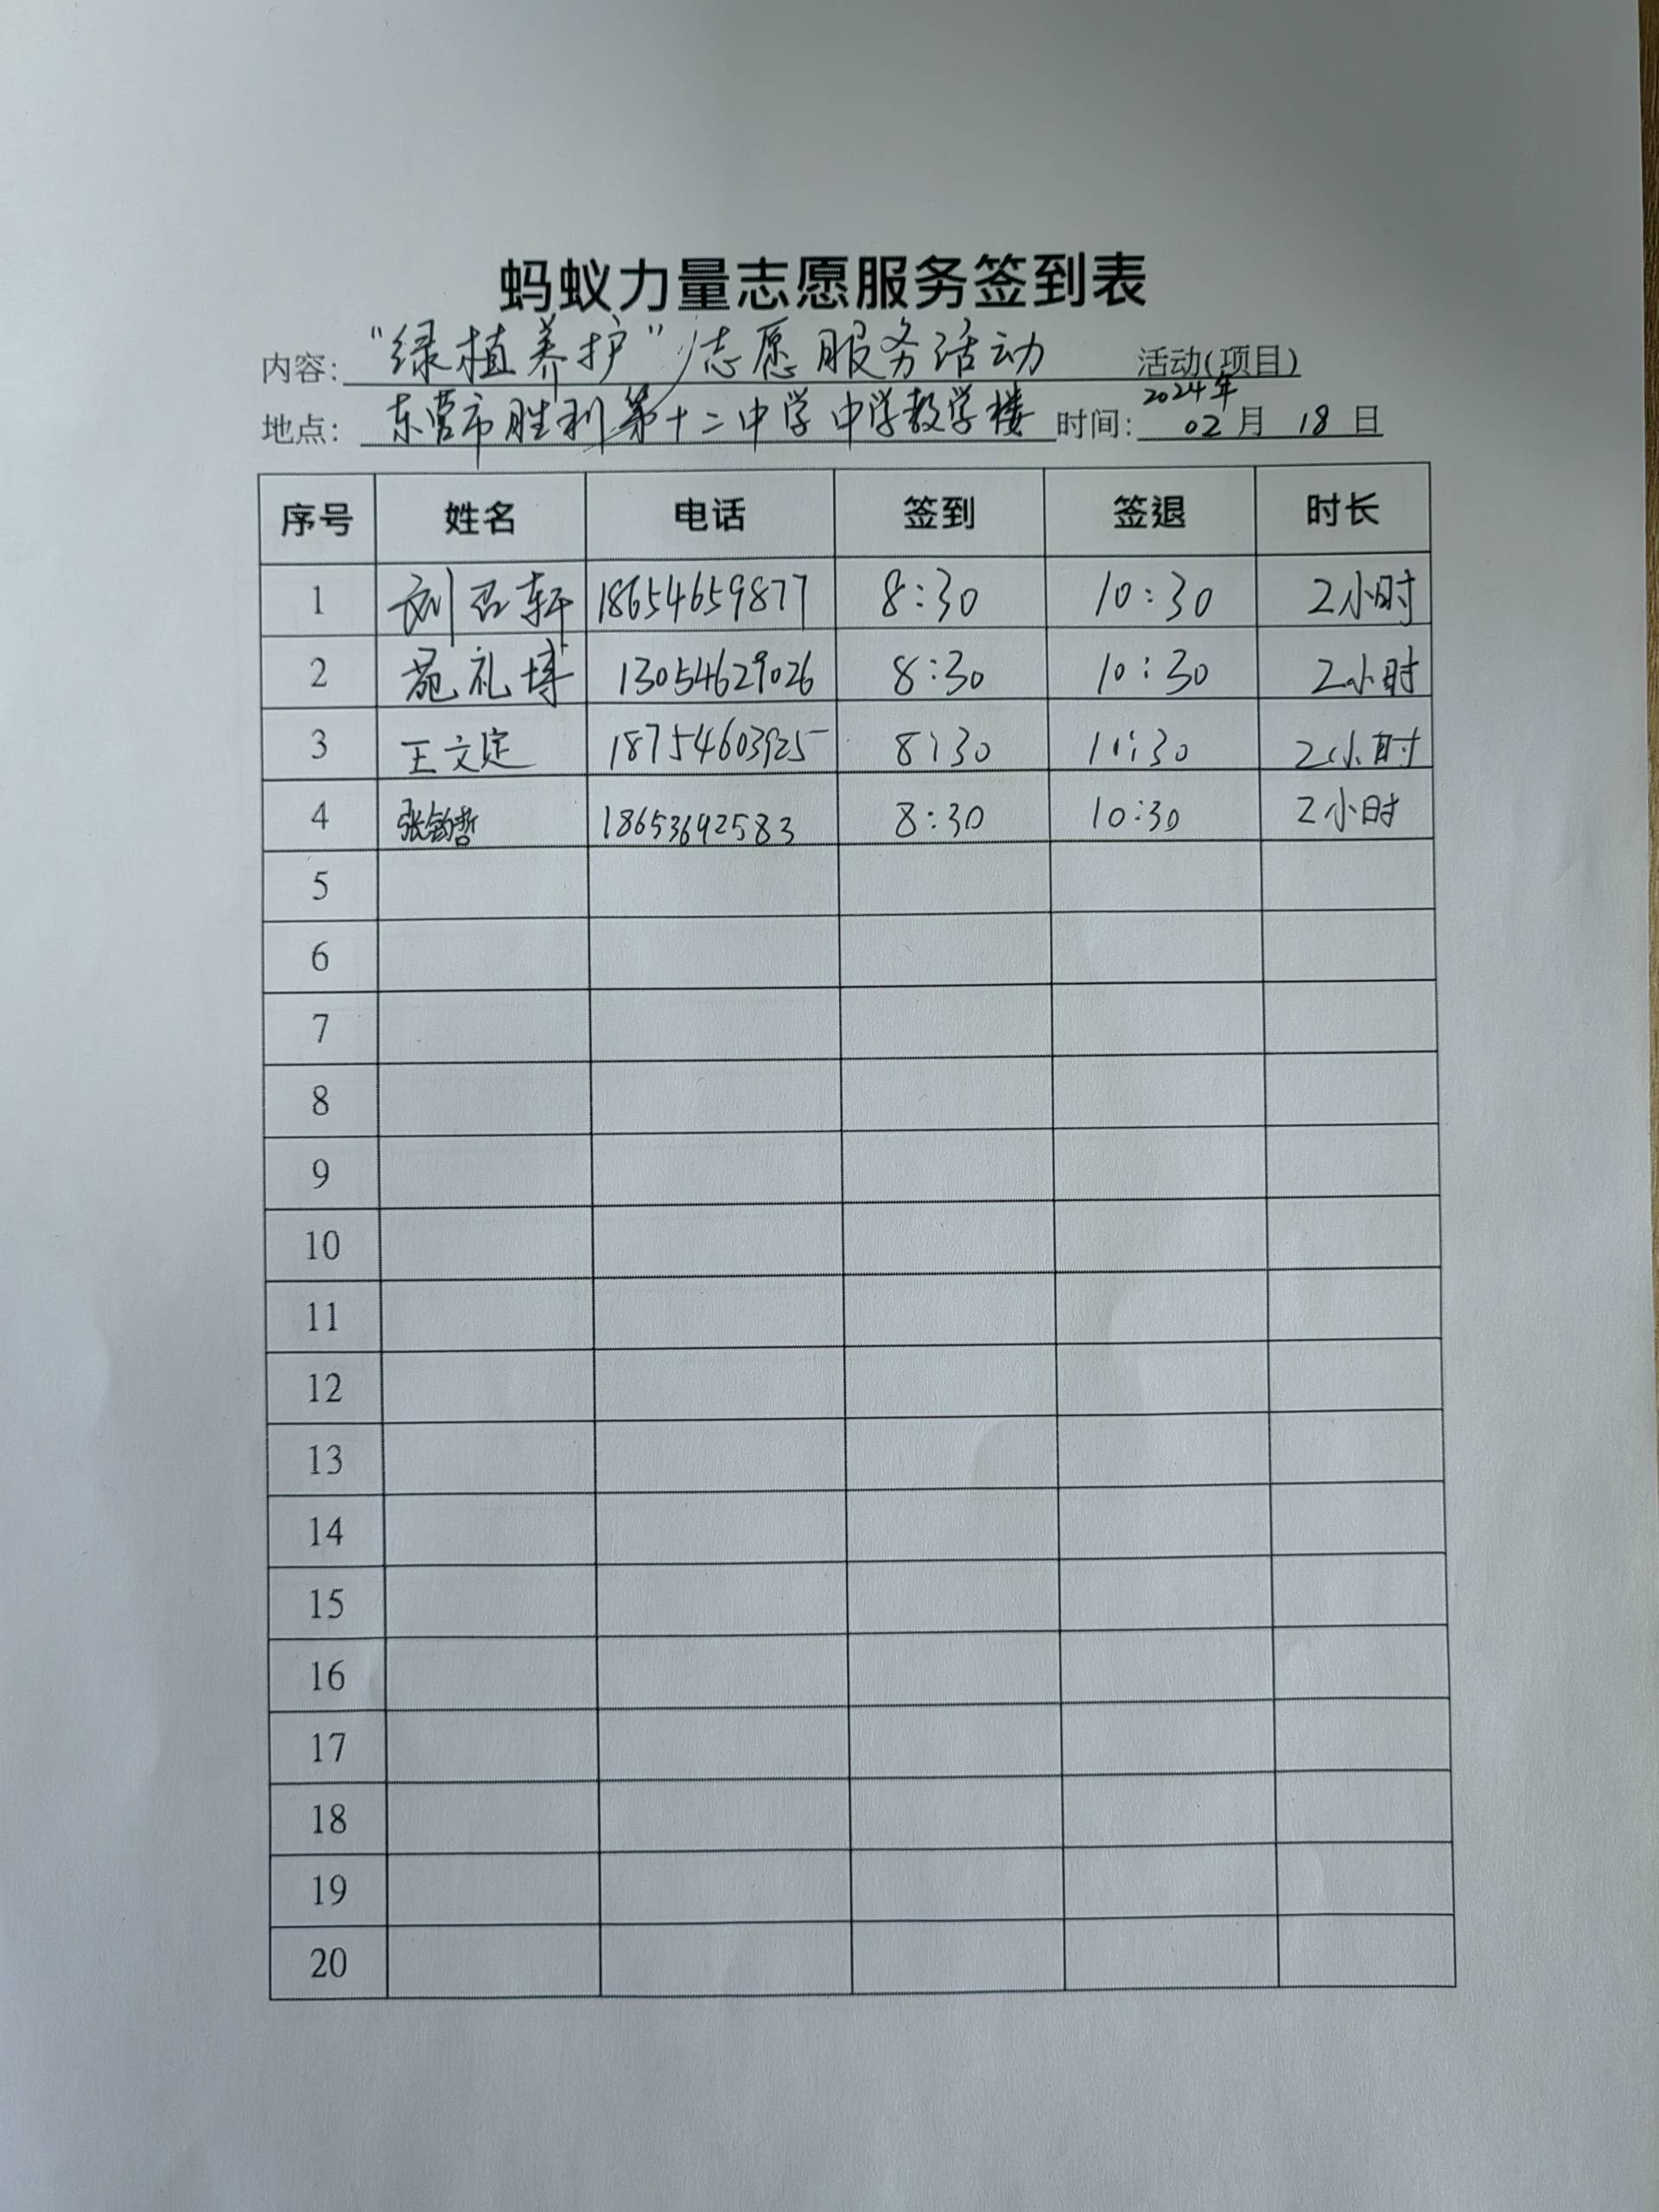 蚂蚁力量志愿服务签到表
内容: “绿植养护”志愿服务活动 活动(项目)
地点: 东营市胜利第十二中学 中学教学楼 时间: 2024年 02月 18日
序号 姓名 电话 签到 签退 时长
1 刘召轩 18654659877 8:30 10:30 2小时
2 苑礼博 13054629026 8:30 10:30 2小时
3 王文定 18754603925 8:30 10:30 2小时
4 张钧哲 18653692583 8:30 10:30 2小时
5
6
7
8
9
10
11
12
13
14
15
16
17
18
19
20